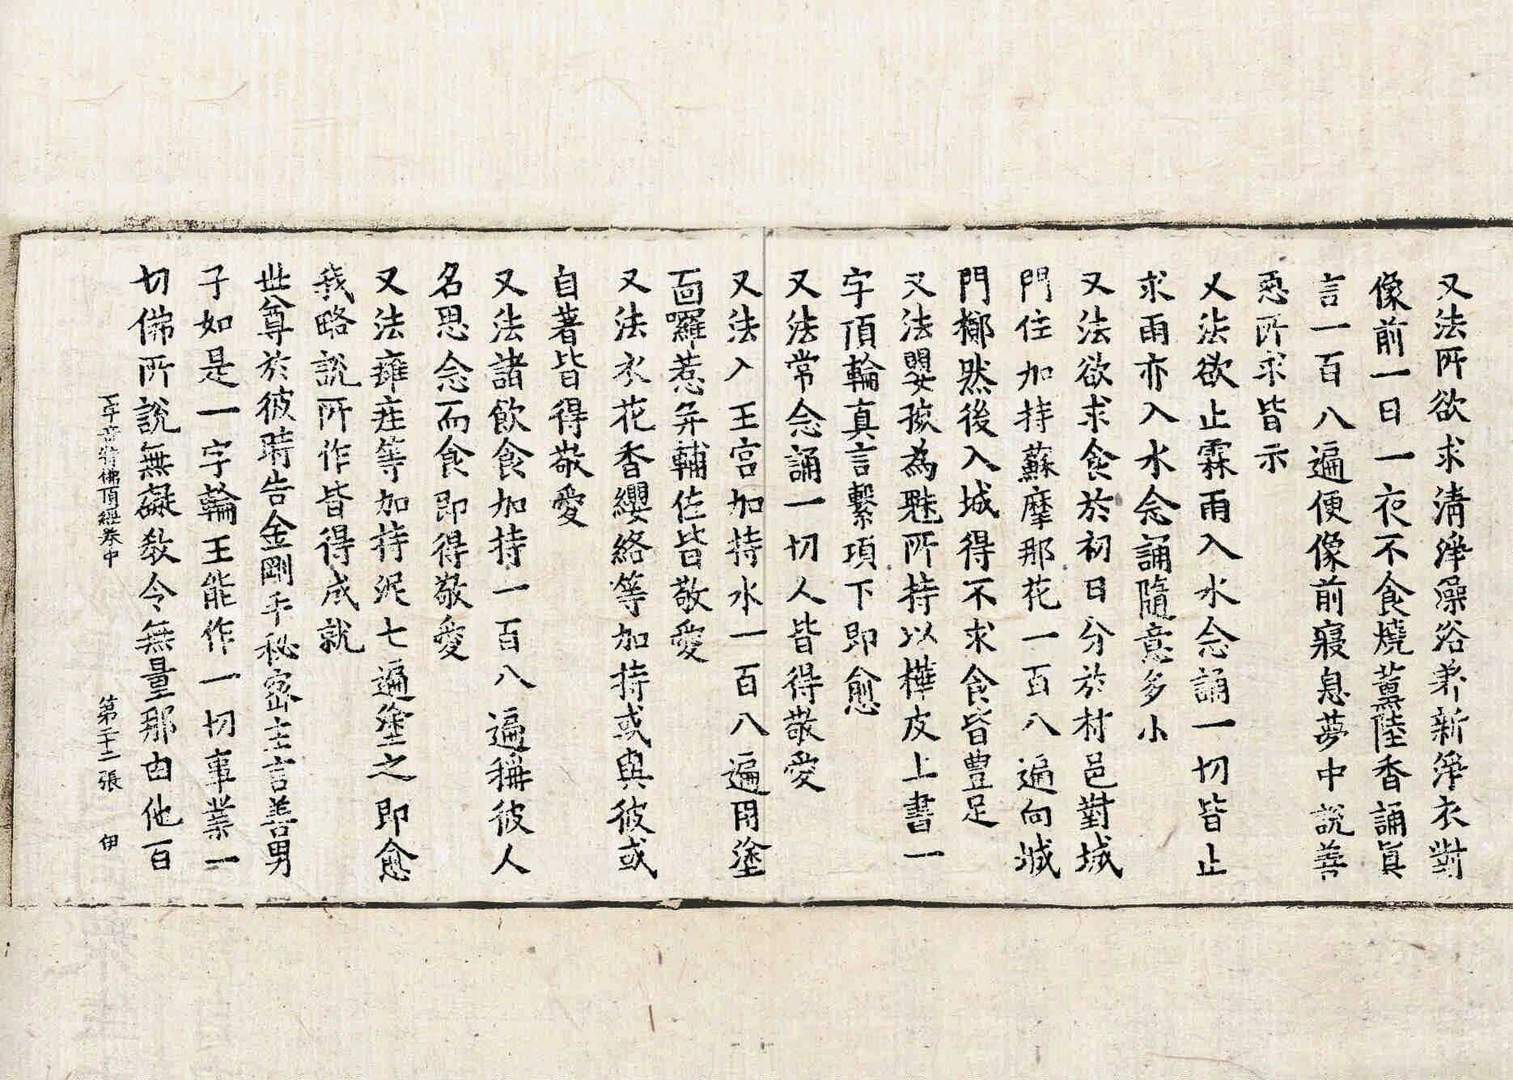 又法所欲求清淨澡浴著新淨衣對
像前一日一夜不食燒薰陸香誦真
言一百八遍便像前寢息夢中說善
惡所求皆示
又法欲止霖雨入水念誦一切皆止
求雨亦入水念誦隨意多小
又法欲求食於初日分於村邑對城
門住加持蘇摩那花一百八遍向城
門擲然後入城得不求食皆豊足
又法嬰孩為魅所持以樺皮上書一
字頂輪真言繫項下即愈
又法常念誦一切人皆得敬愛
又法入王宮加持水一百八遍用塗
面囉惹并輔佐皆敬愛
又法衣花香纓絡等加持或與彼或
自著皆得敬愛
又法諸飲食加持一百八遍稱彼人
名思念而食即得敬愛
又法癰痓等加持泥七遍塗之即愈
我略說所作皆得成就
世尊於彼時告金剛手秘密主言善男
子如是一字輪王能作一切事業一
切佛所說無礙教令無量那由他百
一字奇特佛頂經卷中 第二十二張 伊